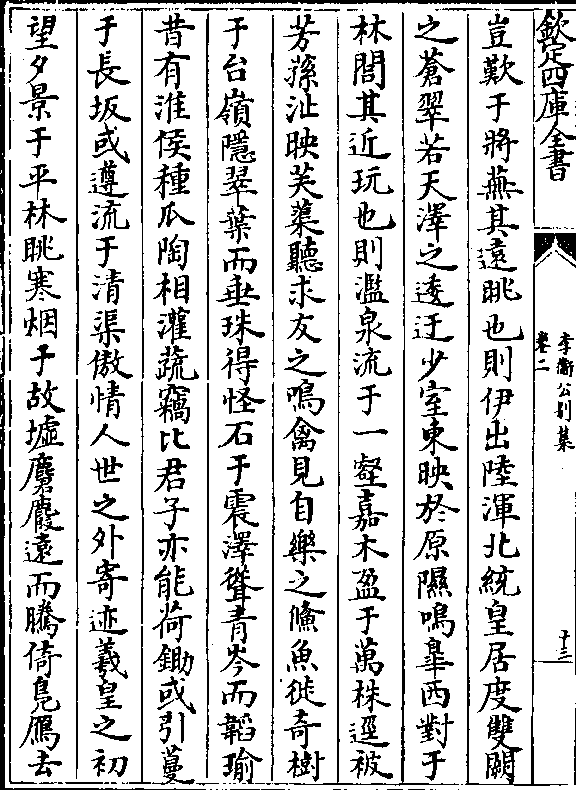 欽定四庫全書
李衛公别集
卷二
十三
豈歎于將蕪其遠眺也則伊出陸渾北統皇居度雙闕
之蒼翠若天澤之逶迂少室東映於原隰鳴臯西對于
林閭其近玩也則濫泉流于一壑嘉木盈于萬株逕被
芳蓀沚映芙蕖聽求友之鳴禽見自樂之鯈魚徙奇樹
于台嶺隱翠葉而垂珠得怪石于震澤聳青岑而韜瑜
昔有淮侯種瓜陶相灌蔬竊比君子亦能荷鋤或引蔓
于長坂或遵流于清渠傲情人世之外寄迹羲皇之初
望夕景于平林眺寒烟于故墟麏麚遠而騰倚鳧鴈去